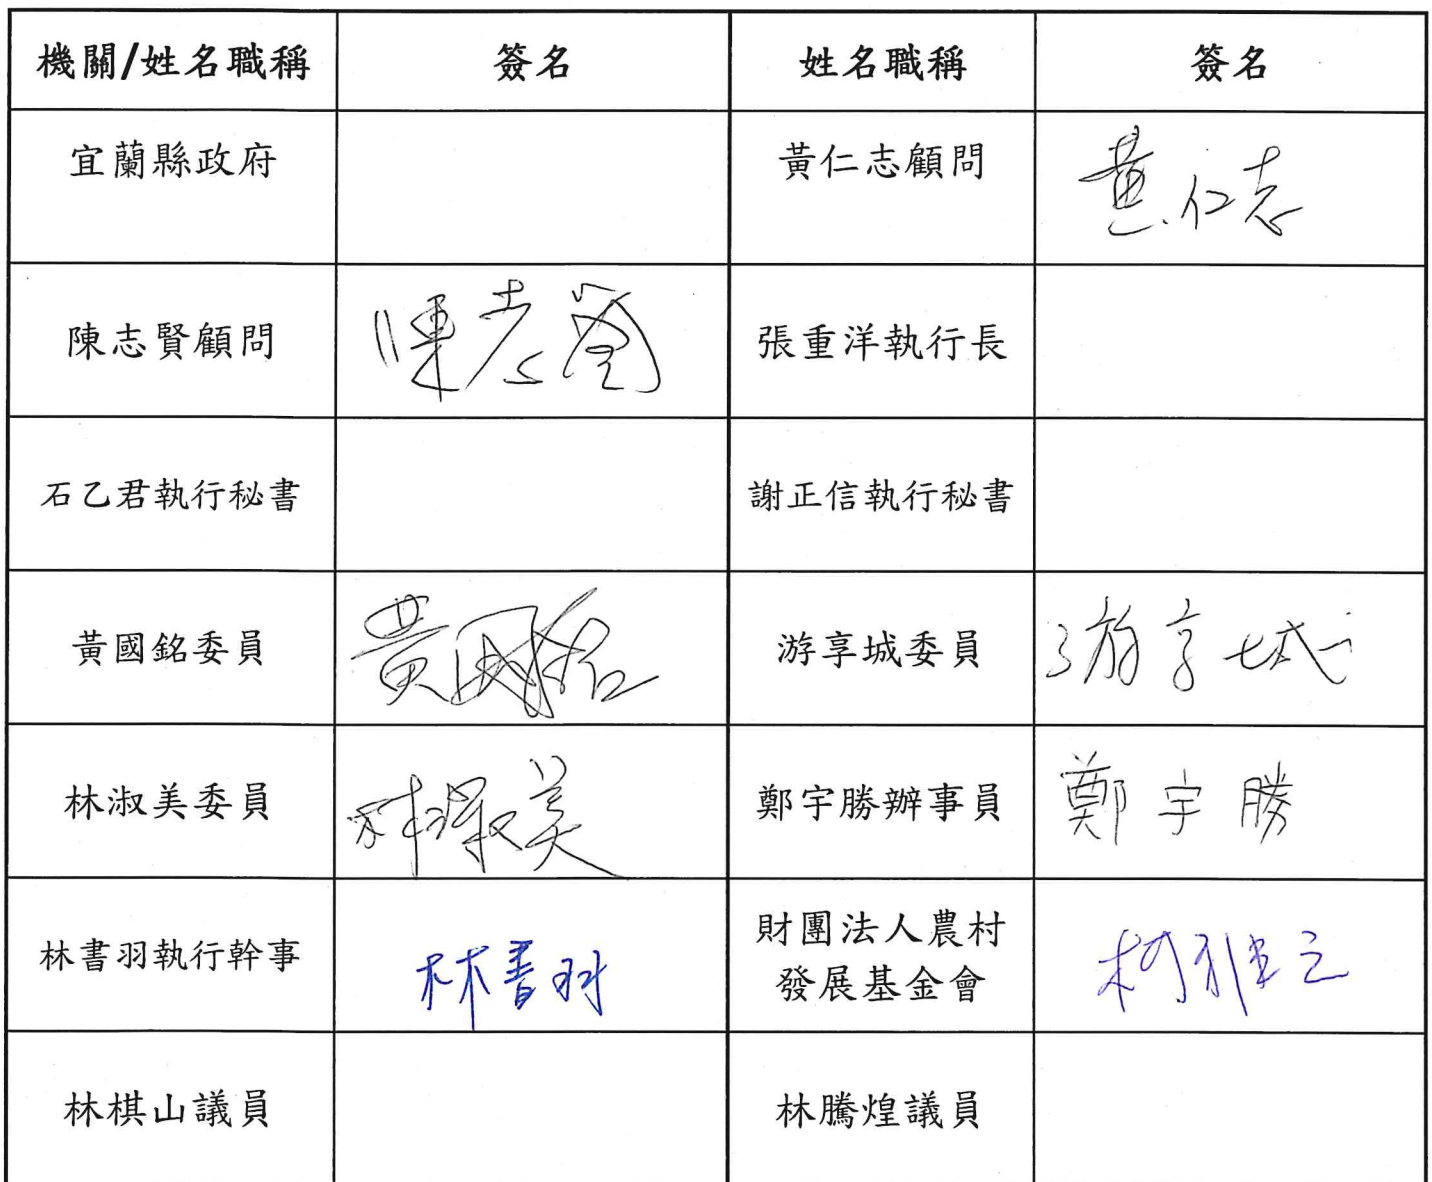 機關/姓名職稱 簽名 姓名職稱 簽名
宜蘭縣政府 黃仁志顧問 黃仁志
陳志賢顧問 陳志賢 張重洋執行長
石乙君執行秘書 謝正信執行秘書
黃國銘委員 黃國銘 游享城委員 游享城
林淑美委員 林淑美 鄭宇勝辦事員 鄭宇勝
林書羽執行幹事 林書羽 財團法人農村
發展基金會
林棋山議員 林騰煌議員